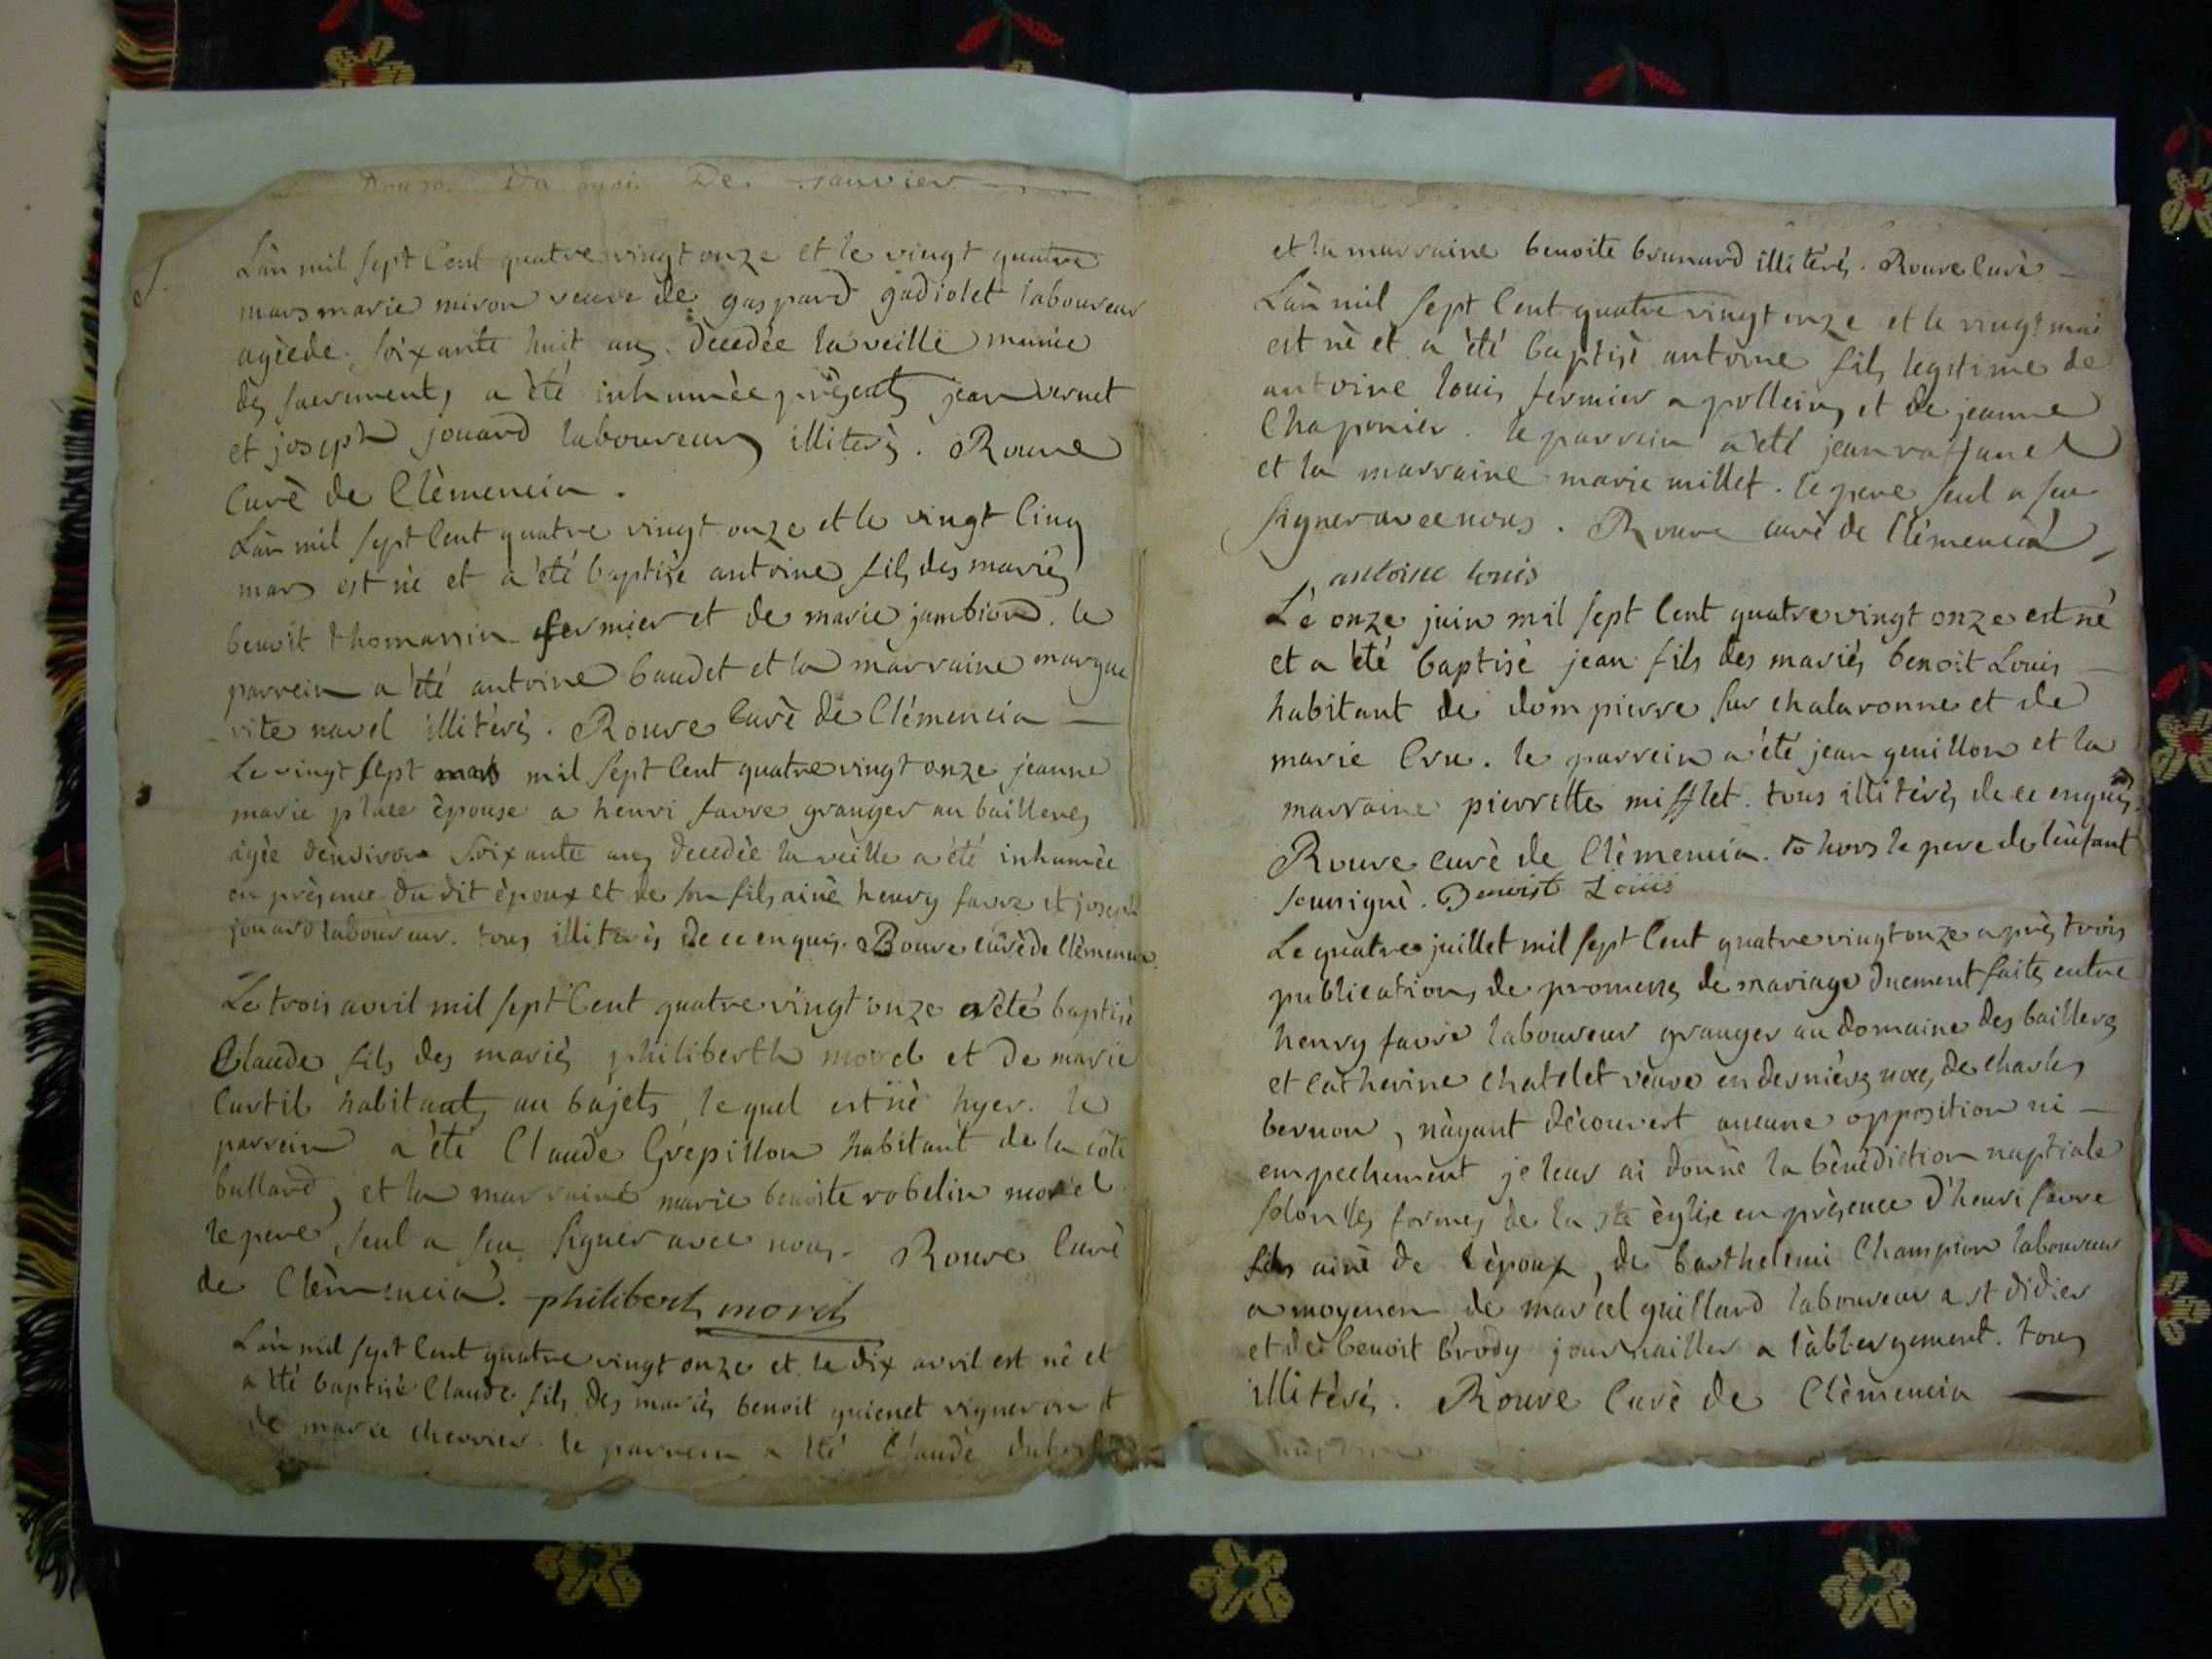 Douze Du mois De Janvier
L'àn mil sept Cent quatre vingt onze et le vingt quatre
mars marie miron veuve de gaspard gadiolet laboureur
agèe de soixante huit ans. décedée la veille munie
des sacrements, a èté inhumèe présents jean vernet
et joseph jouard laboureurs illiterés. Rouve
Curè de Clèmencia.
L'àn mil sept Cent quatre vingt onze et le vingt Cinq
mars est nè et a èté baptisé antoine fils des mariés
benoit thomassin fermier et de marie jambion. le
parrein a èté antoine baudet et la marraine margue
rite navel illitérés. Rouve Curè de Clémencia
Le vingt sept mars mil sept Cent quatre vingt onze jeanne
marie place èpouse a henri favre granger au bailleres
agèe dènviron soixante ans décedèe la veille a èté inhumèe
en prèsence du dit èpoux et de son fils ainè henry favre et joseph
jouard laboureur. tous illiterés de ce enquis. Rouve curè de Clèmencia
Le trois avril mil sept Cent quatre vingt onze a èté baptisè
Claude fils des mariés philiberth morel et de marie
Curtil habitants au bajets, le quel est nè hyer. le
parrein a èté Claude Grépillon habitant de la côte
bullard, et la marraine marie benoite robelin morel
le pere seul a seu signer avec nous. Rouve Curè
de Clèmencia. philibert morel
L'àn mil sept Cent quatre vingt onze et le dix avril est nè et
a èté baptisè Claude fils des mariés benoit guienet vigneron et
de marie cherrier. le parrein a èté Claude
et la marraine benoite brunard illitérés. Rouve Curè
L'àn mil sept Cent quatre vingt onze et le vingt mai
est nè et a èté baptisè antoine fils legitime de
antoine louis fermier a polleins et de jeanne
Chaponier. le parrein a èté jean raffanel
et la marraine marie millet. le pere seul a seu
signer avec nous. Rouve curè de Clémencia
antoine louis
Le onze juin mil sept Cent quatre vingt onze est né
et a èté baptisé jean fils des mariés benoit Louis
habitant de dompierre sur chalaronne et de
marie Cru. le parrein a èté jean genillon et la
marraine pierrette mifflet. tous illitérés de ce enquis
Rouve curè de Clèmencia. hors le pere de l'enfant
sousignè. Benoist Louis
Le quatre juillet mil sept Cent quatre vingt onze après trois
publications de promesses de mariage duement faites entre
henry favre laboureur granger au domaine des bailleres
et Catherine Chatelet veuve en dernières noces de charles
bernon, n'ayant dècouvert aucune opposition ni
empechement je leur ai donné la bènèdiction nuptiale
selon les formes de la ste èglise en prèsence d'henri favre
fils ainè de l'èpoux, de barthelemi Champion laboureur
a mogenen de marcel guillard laboureur a st didier
et de benoit brody journaillier a làbbergement. tous
illitérés. Rouve Curè de Clèmencia